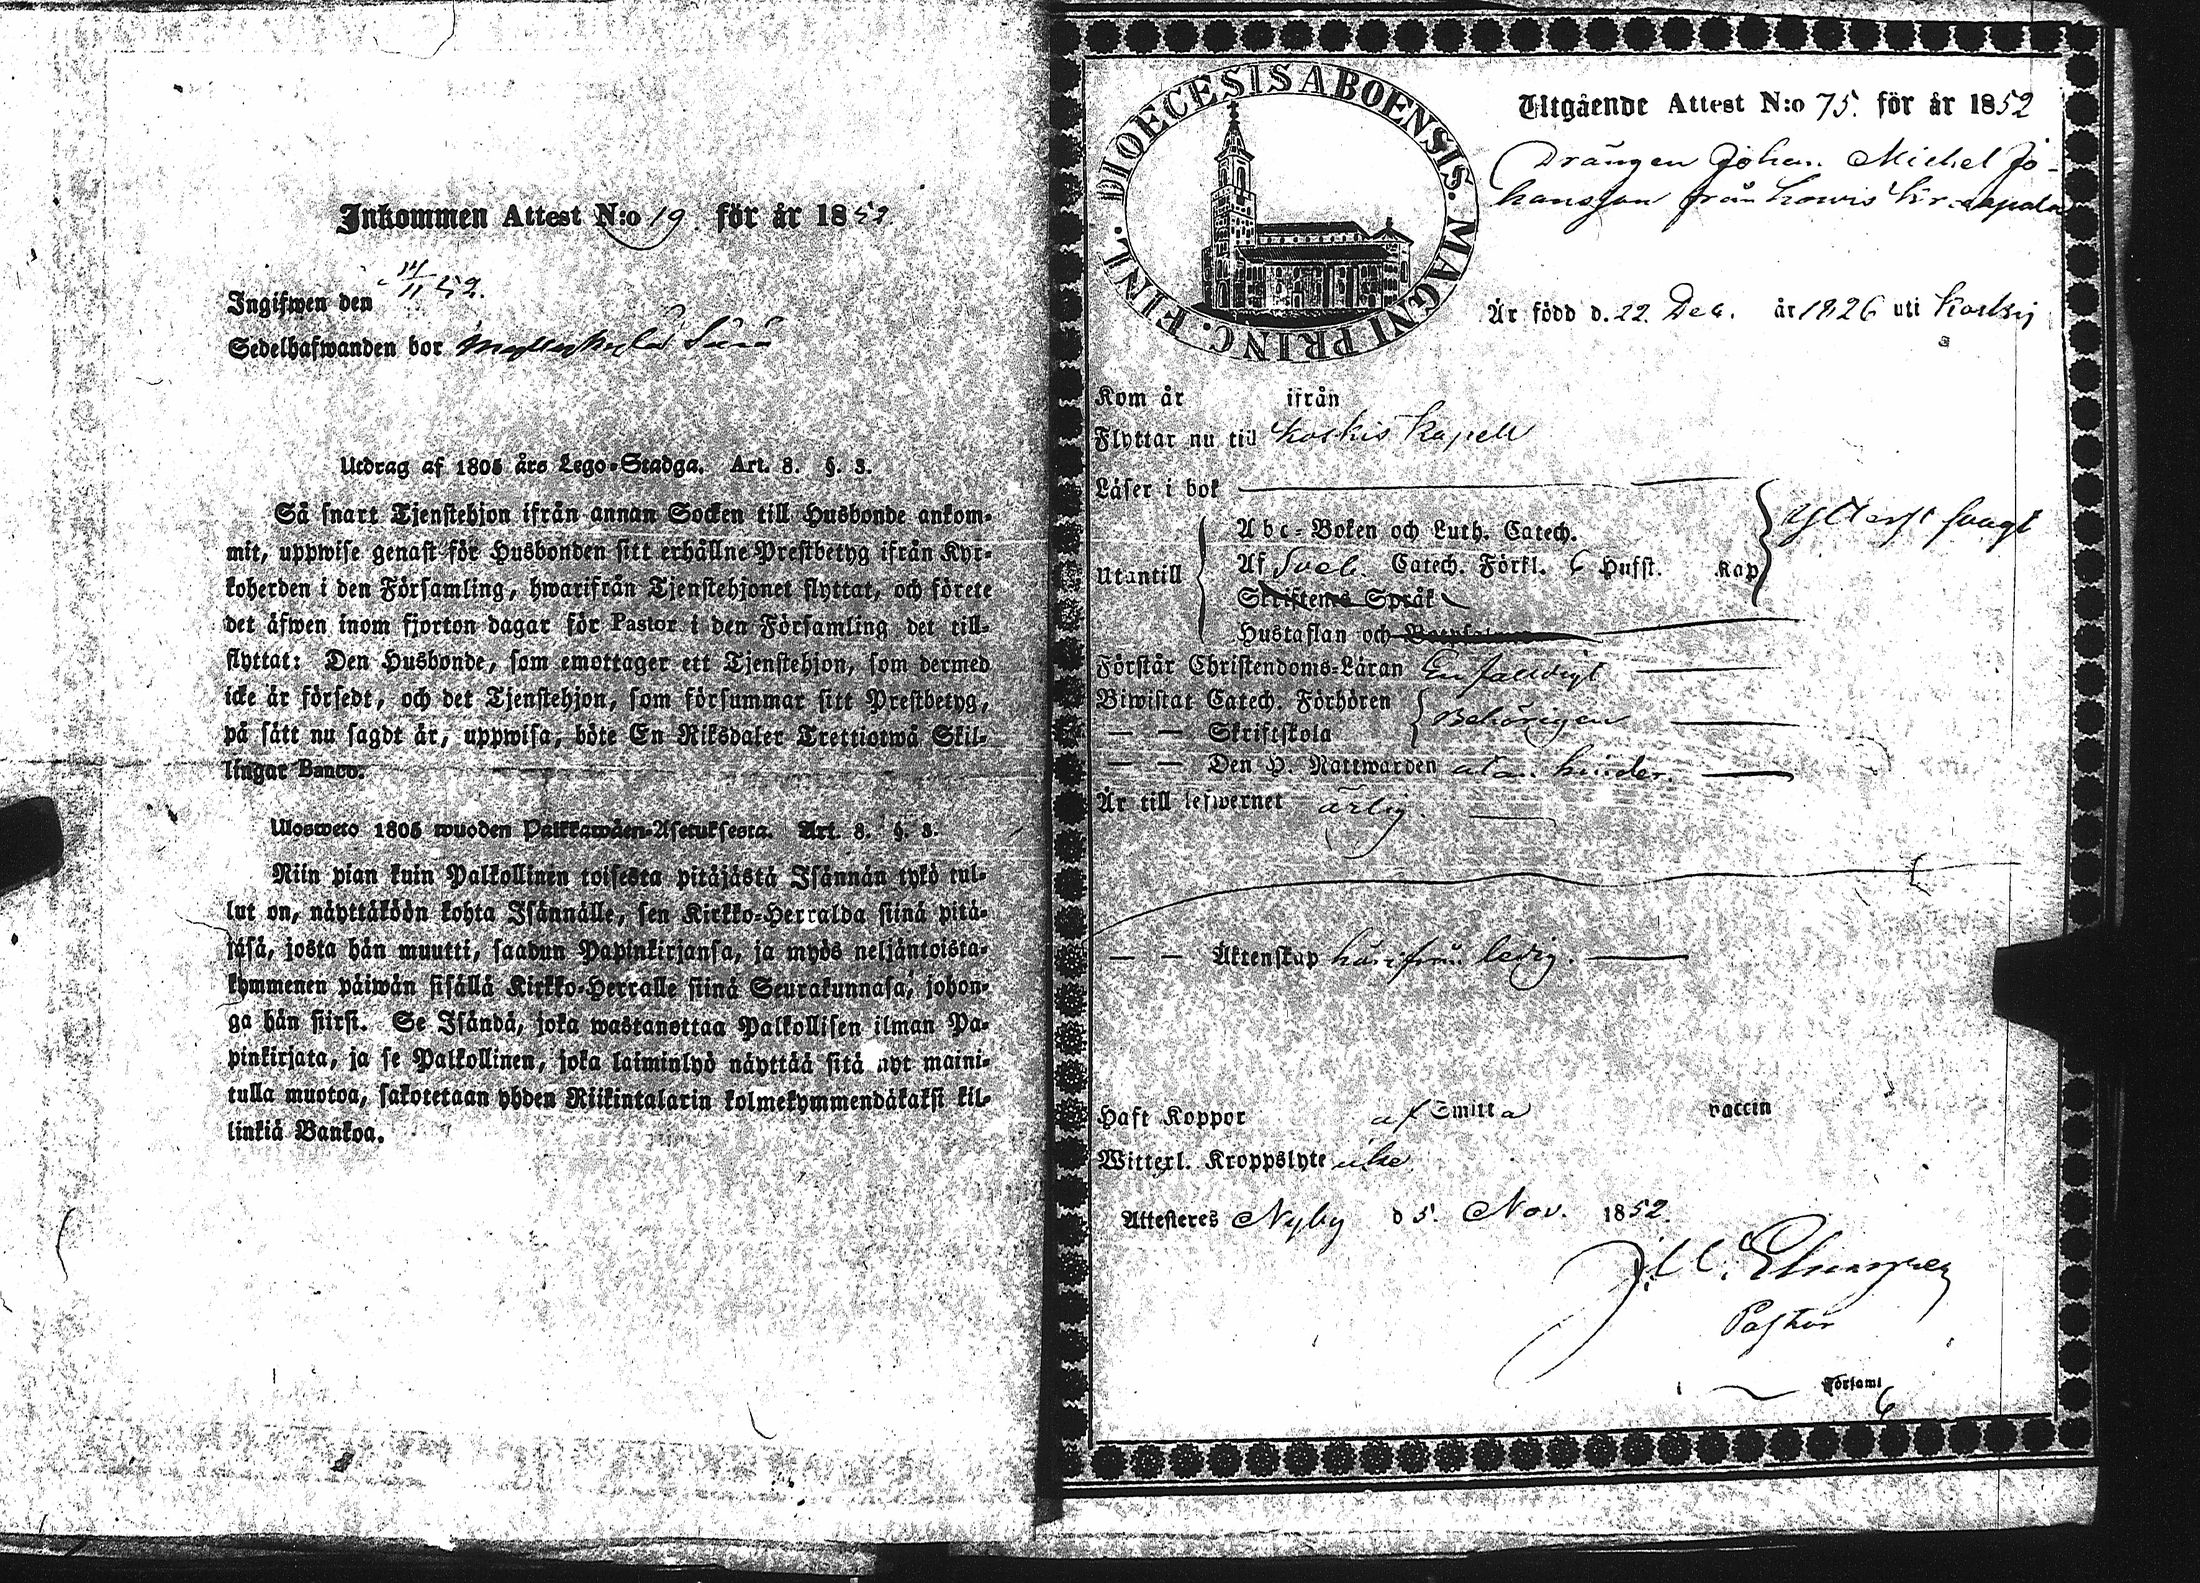 Inkommen Attest N:o 19 för år 1852
Ingifwen den 14/11 52.
Sedelhafwanden bor
Utdrag af 1805 års Lego-Stadga. Art. 8. §. 3.
Så snart Tjenstehjon ifrån annan Socken till Husbonde ankom-
mit, uppwise genast för Husbonden sitt erhållne Prestbetyg ifrån Kyr-
koherden i den Församling, hwarifrån Tjenstehjonet flyttat, och förete
det äfwen inom fjorton dagar för Pastor i den Församling det till-
flyttat: Den Husbonde, som emottager ett Tjenstehjon, som dermed
icke är försedt, och det Tjenstehjon, som försummar sitt Prestbetyg,
på sätt nu sagdt är, uppwisa, böte En Riksdaler Trettiotwå Skil-
lingar Banco.
Ulosweto 1805 wuoden Palkkawäen-Asetuksesta. Art. 8. §. 3.
Niin pian kuin Palkollinen toisesta pitäjästä Isännän tykö tul-
lut on, näyttäköön kohta Isännälle, sen Kirkko-Herralda siinä pitä-
jäsä, josta hän muutti, saadun Papinkirjansa, ja myös neljäntoista-
kymmenen päiwän sisällä Kirkko-Herralle siinä Seurakunnasa, johon-
ga hän siirsi. Se Isändä, joka wastanottaa Palkollisen ilman Pa-
pinkirjata, ja se Palkollinen, joka laiminlyö näyttää sitä nyt maini-
tulla muotoa, sakotetaan yhden Riikintalarin kolmekymmendäkaksi kil-
linkiä Bankoa.
DIOECESIS ABOENSIS. MAGNI PRINC. FINL.
Utgående Attest N:o 75. för år 1852
Drängen Johan Michel Jo-
hansson från
Är född d. 22. Dec. år 1826 uti Koskis
Kom år ifrån
Flyttar nu till Koskis Kapell
Läser i bok
Utantill
Abc-Boken och Luth. Catech.
Af Sveb. Catech. Förkl. 6 Hufst. Kap
Skriftens Språk
Hustaflan och
Ytterst svagt
Förstår Christendoms-Läran Enfaldigt
Biwistat Catech. Förhören
— — Skriftskola
Behörigen
— — Den H. Nattwarden utan hinder.
Är till lefwernet ärlig.
— — Äktenskap härifrån ledig.
Haft Koppor af Smitta vaccin
Witterl. Kroppslyte icke
Attesteres Nyby d 5. Nov. 1852.
Pastor
i Församl